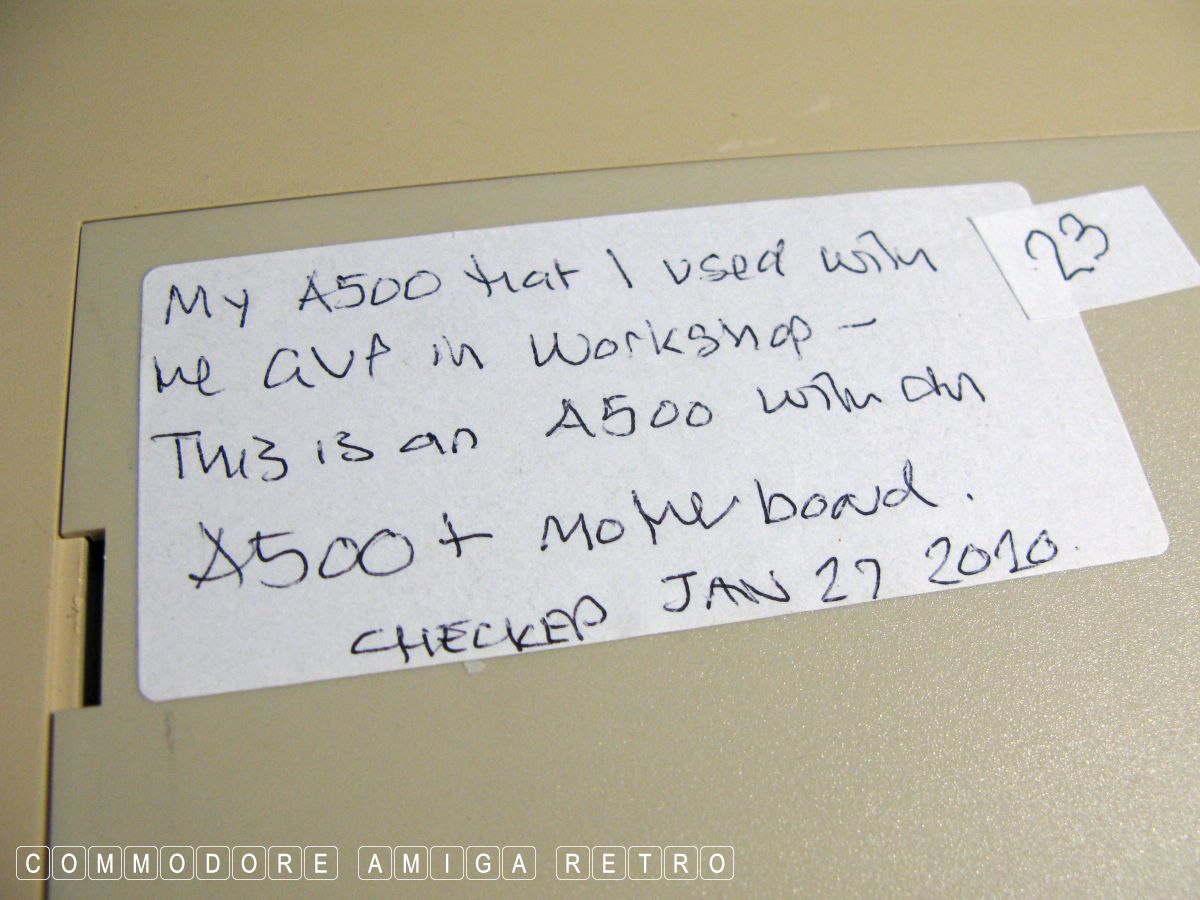 My A500 that I used with
23
the GVP in Workshop –
This is an A500 with an
A500+ Motherboard.
CHECKED JAN 27 2010.
COMMODORE AMIGA RETRO